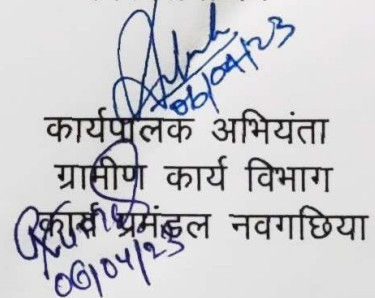 06/04/23
कार्यपालक अभियंता
ग्रामीण कार्य विभाग
कार्य प्रमंडल नवगछिया
06/04/23